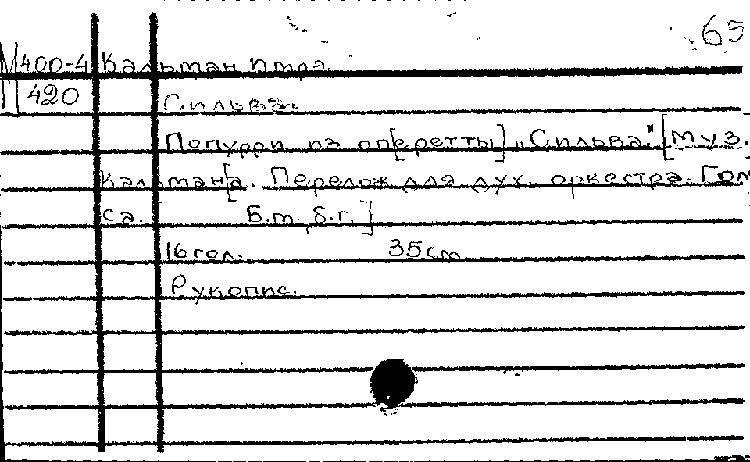 65
М400-4 Кальман Имре
420
Сильва.
Попурри из оп[еретты] „Сильва" [Муз.
Кальман[а. Перелож для дух. оркестра. Гом
са. Б.м, б.г.]
16 гол. 35см
Рукопис.